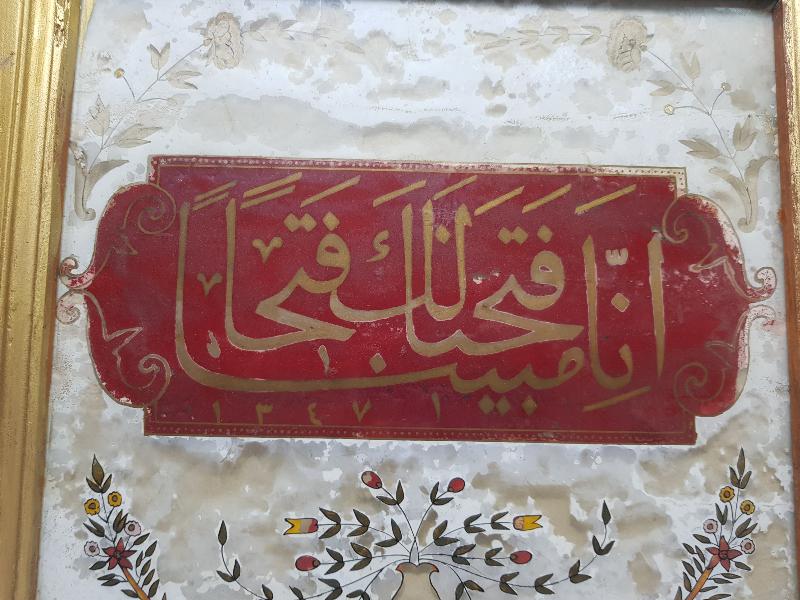 إنا فتحنا لك فتحا مبينا
١٣٤٧